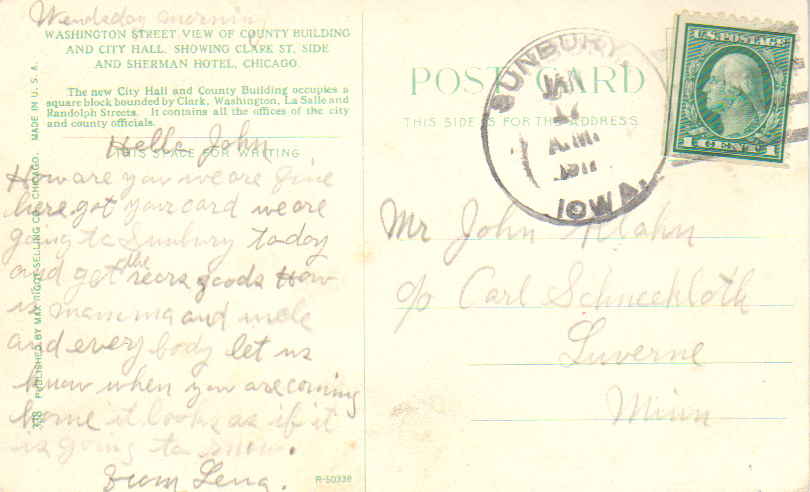 Wendsday morning
WASHINGTON STREET VIEW OF COUNTY BUILDING
AND CITY HALL, SHOWING CLARK ST. SIDE
AND SHERMAN HOTEL, CHICAGO.
The new City Hall and County Building occupies a
square block bounded by Clark, Washington, La Salle and
Randolph Streets. It contains all the offices of the city
and county officials.
Hello John
THIS SPACE FOR WRITING
How are you we are fine
here. got your card we are
going to Sunbury today
and got the goods How
is mamma and uncle
and every body let us
know when you are coming
home it looks as if it
is going to snow.
From Lena.
R-50338
318 PUBLISHED BY MAX RIGOT SELLING CO., CHICAGO. MADE IN U. S. A.
POST CARD
THIS SIDE IS FOR THE ADDRESS
SUNBURY,
JAN
17
A.M.
IOWA.
U.S. POSTAGE
1 CENT 1
Mr John Klahn
c/o Carl Schneekloth
Luverne
Minn